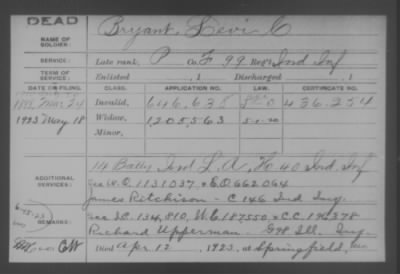 DEAD
NAME OF SOLDIER: Bryant, Levi C
SERVICE: Late rank, P Co. F 99 Reg't Ind Inf
TERM OF SERVICE: Enlisted , 1 Discharged , 1
DATE OF FILING. CLASS. APPLICATION NO. LAW. CERTIFICATE NO.
1888, Mar 24 Invalid, 646,638 436.254
1923 May 18 Widow, 1,205,563 5-1-20
Minor,
ADDITIONAL SERVICES: 14 Batty Ind L. A., Ho. 40 Ind. Inf
1131037 662064
James Ritchison - C 146 Ind Inf
REMARKS: 187550
Richard Upperman - G 98 Ill. Inf
Died Apr. 12, 1923, at Springfield,